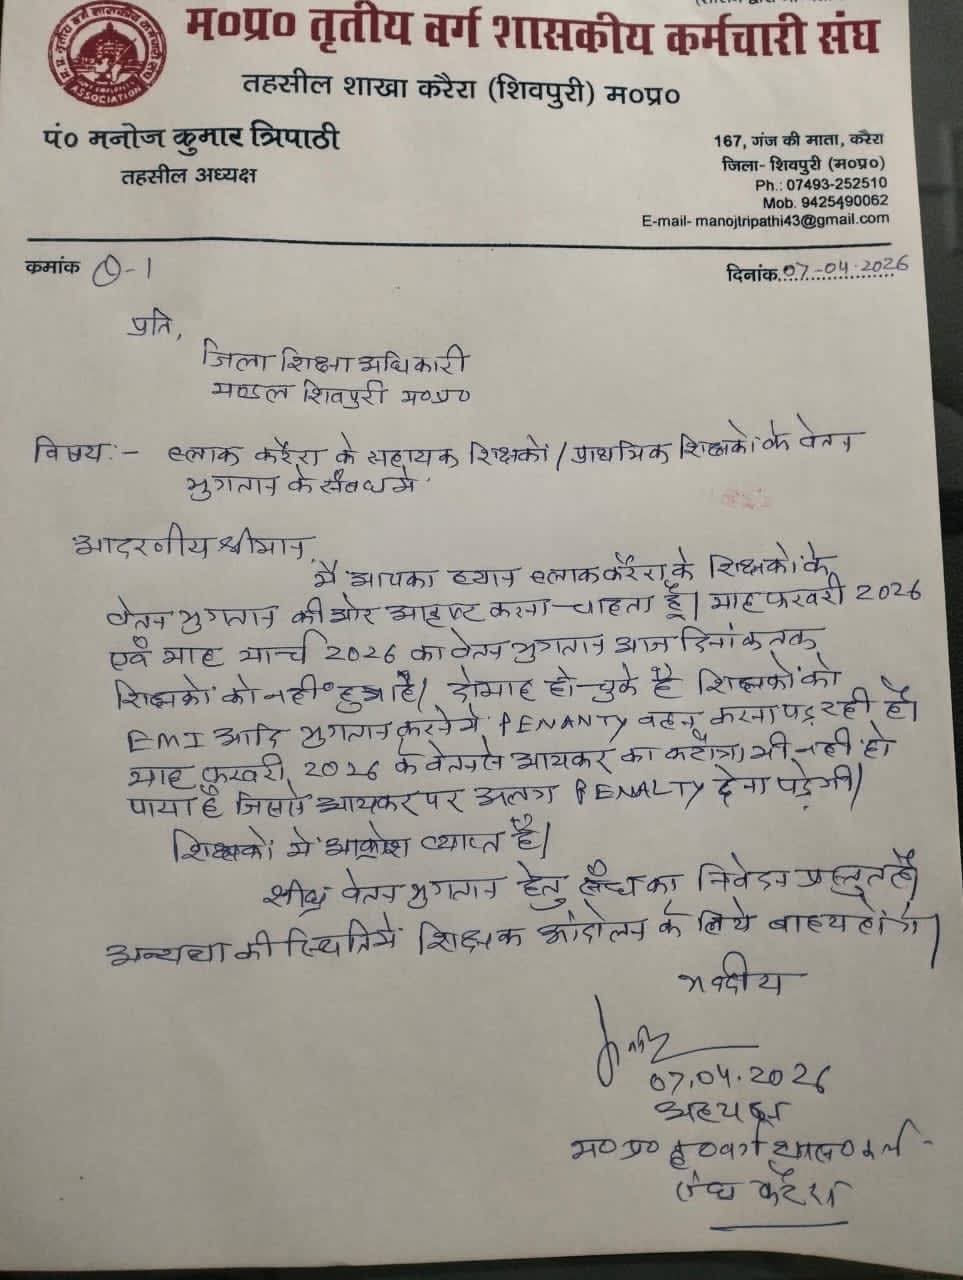 म०प्र० तृतीय वर्ग शासकीय कर्मचारी संघ
तहसील शाखा करैरा (शिवपुरी) म०प्र०
ASSOCIATION
पं० मनोज कुमार त्रिपाठी
तहसील अध्यक्ष
167, गंज की माता, करैरा
जिला- शिवपुरी (म०प्र०)
Ph.: 07493-252510
Mob. 9425490062
E-mail- manojtripathi43@gmail.com
कमांक Q-1
दिनांक 07-04-2026
प्रति,
जिला शिक्षा अधिकारी
मण्डल शिवपुरी म०प्र०
विषय:- ब्लाक करैरा के सहायक शिक्षकों / प्राथमिक शिक्षकों के वेतन
भुगतान के संबंध में
आदरणीय श्रीमान,
मैं आपका ध्यान ब्लाक करैरा के शिक्षकों के
वेतन भुगतान की ओर आकृष्ट करना चाहता हूँ। माह फरवरी 2026
एवं माह मार्च 2026 का वेतन भुगतान आज दिनांक तक
शिक्षकों को नहीं हुआ है। दो माह हो चुके है शिक्षकों को
EMI आदि भुगतान करने में PENANTY वहन करना पड़ रही है।
माह फरवरी, 2026 के वेतन से आयकर का कटौत्रा भी नहीं हो
पाया है जिससे आयकर पर अलग PENALTY देना पड़ेगी।
शिक्षकों में आक्रोश व्याप्त है।
शीघ्र वेतन भुगतान हेतु संघ का निवेदन प्रस्तुत है।
अन्यथा की स्थिति में शिक्षक आंदोलन के लिये बाध्य होंगे।
भवदीय
07.04.2026
अध्यक्ष
म०प्र० तृ०वर्ग शास० कर्म-
संघ करैरा